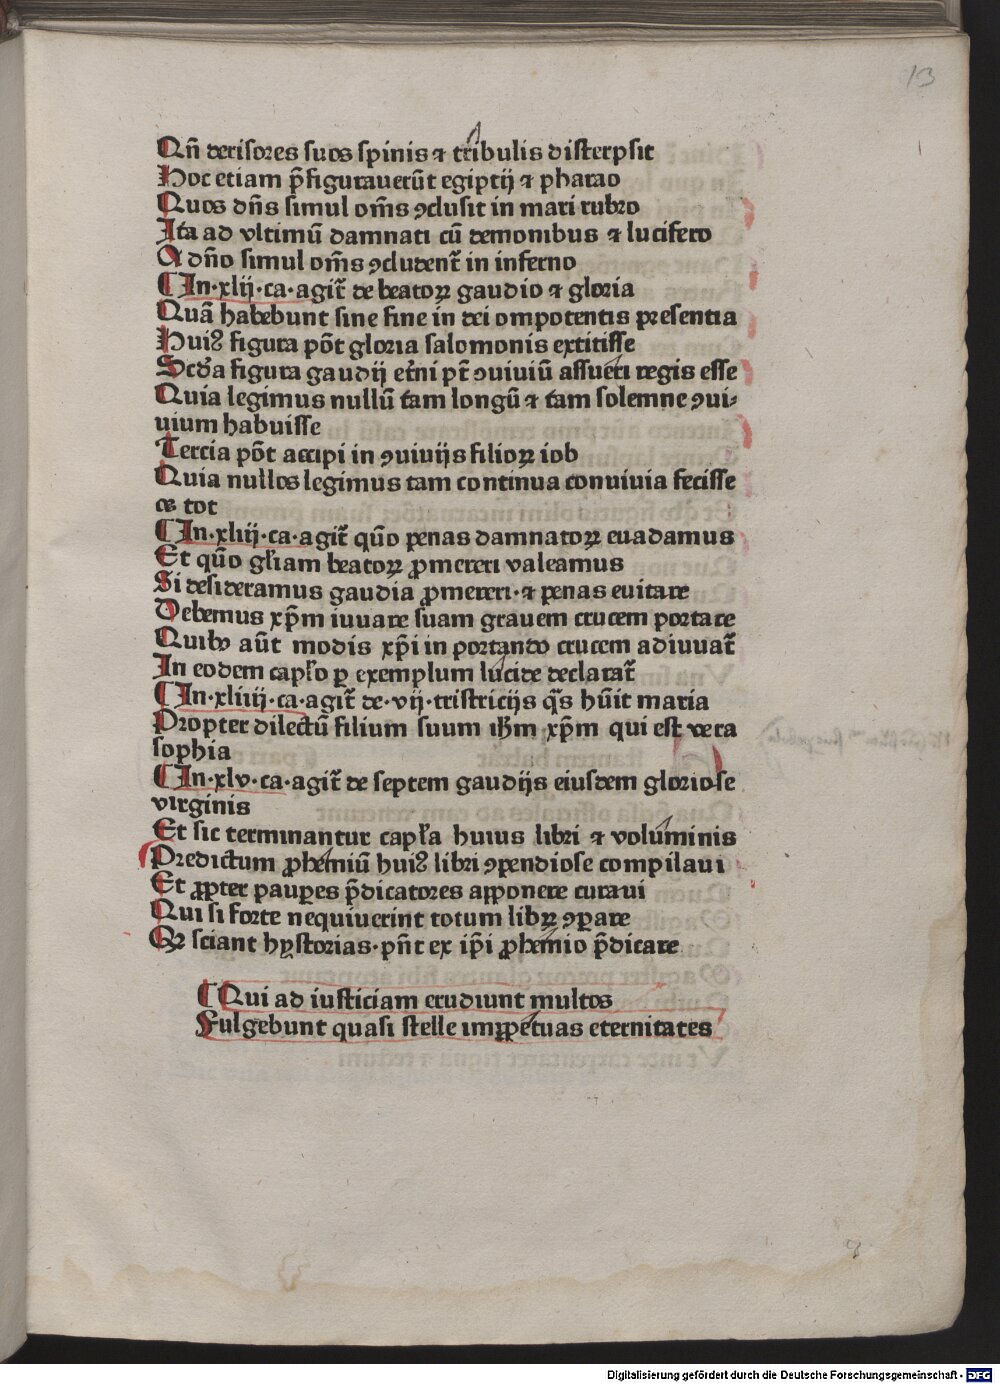 13
Qñ derisores suos spinis ⁊ tribulis disterpsit
Hoc etiam p̄figurauerūt egiptij ⁊ pharao
Quos dñs simul om̄s ꝯclusit in mari rubro
Ita ad vltimū damnati cū demonibus ⁊ lucifero
A dño simul om̄s ꝯcludent̄ in inferno
¶ In·xlij·ca·agit̄ de beatoꝝ gaudio ⁊ gloria
Quā habebunt sine fine in dei om̄potentis presentia
Huiꝰ figura pōt gloria salomonis extitisse
Scd̄a figura gaudij et̄ni pt̄ ꝯuiuiū assueti regis esse
Quia legimus nullū tam longū ⁊ tam solemne ꝯui-
uium habuisse
Tercia pōt accipi in ꝯuiuijs filioꝝ iob
Quia nullos legimus tam continua conuiuia fecisse
ce tot
¶ In·xliij·ca·agit̄ quō penas damnatoꝝ euadamus
Et quō gl̄iam beatoꝝ ꝓmereri valeamus
Si desideramus gaudia ꝓmereri·⁊ penas euitare
Debemus xp̄m iuuare suam grauem crucem portare
Quibꝰ aūt modis xp̄i in portando crucem adiuuat̄
In eodem capl̄o ꝑ exemplum lucide declarat̄
¶ In·xliiij·ca·agit̄ de·vij·tristricijs q̄s hūit maria
Propter dilectū filium suum ih̄m xp̄m qui est vera
sophia
¶ In·xlv·ca·agit̄ de septem gaudijs eiusdem gloriose
virginis
Et sic terminantur capl̄a huius libri ⁊ voluminis
Predictum ꝓhemiū huiꝰ libri ꝯpendiose compilaui
Et ꝓpter pauꝑes p̄dicatores apponere curaui
Qui si forte nequiuerint totum libꝝ ꝯꝑare
Qꝛ sciant hystorias·pn̄t ex ip̄i ꝓhemio p̄dicare
¶ Qui ad iusticiam erudiunt multos
Fulgebunt quasi stelle imꝑpetuas eternitates
Digitalisierung gefördert durch die Deutsche Forschungsgemeinschaft - DFG